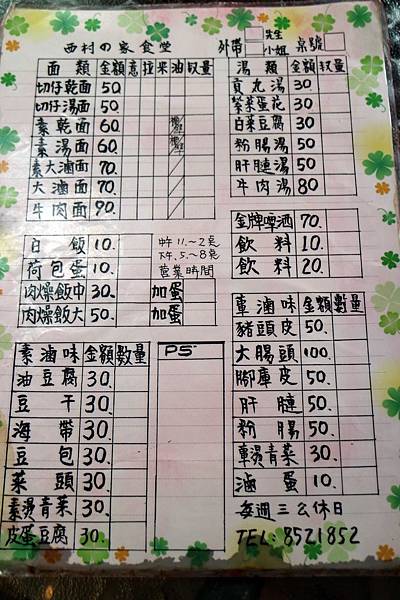 西村の家食堂 外帶 先生 小姐 桌號
面類 金額 意 拉 米 油 數量
切仔乾面 50.
切仔湯面 50
素乾面 60
素湯面 60.
素大滷面 70.
大滷面 70.
牛肉面 90.
湯類 金額 數量
貢丸湯 30
紫菜蛋花 30.
白菜豆腐 30.
粉腸湯 50.
肝腱湯 50
牛肉湯 80
金牌啤酒 70.
飲料 10.
飲料 20.
白飯 10.
荷包蛋 10.
肉燥飯中 30. 加蛋
肉燥飯大 50. 加蛋
中午11.~2点
下午.5.~8点
營業時間
素滷味 金額 數量
油豆腐 30.
豆干 30.
海帶 30.
豆包 30.
菜頭 30.
素燙青菜 30.
皮蛋豆腐 30.
PS
葷滷味 金額 數量
豬頭皮 50.
大腸頭 100.
腳庫皮 50.
肝腱 50.
粉腸 50.
葷燙青菜 30
滷蛋 10.
每週三公休日
TEL:8521852